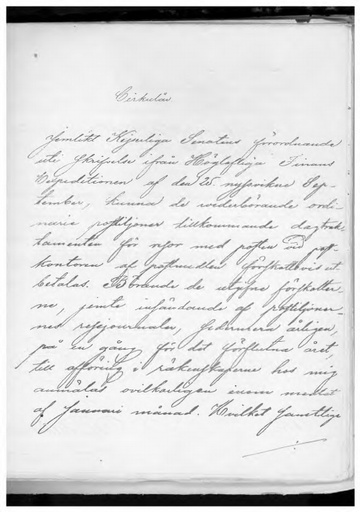 Cirkulär
Jemlikt Kejserliga Senatens förordnande
uti skrifvelse ifrån Höglofliga Finans
Expeditionen af den 25 nyssvikne Sep-
tember, kunna de vederbörande ordi-
narie postiljoner tillkommande dagtrak-
tamenten för resor med posten å post-
kontoren af postmedlen förskottsvis ut-
betalas. Börande de utgifne förskotter-
ne, jemte insändande af postiljoner-
nes resejournaler, sedermera årligen,
på en gång för det förflutna året,
till afföring i räkenskaperne hos mig
anmälas ovilkorligen inom medlet
af Januari månad. Hvilket samtlige